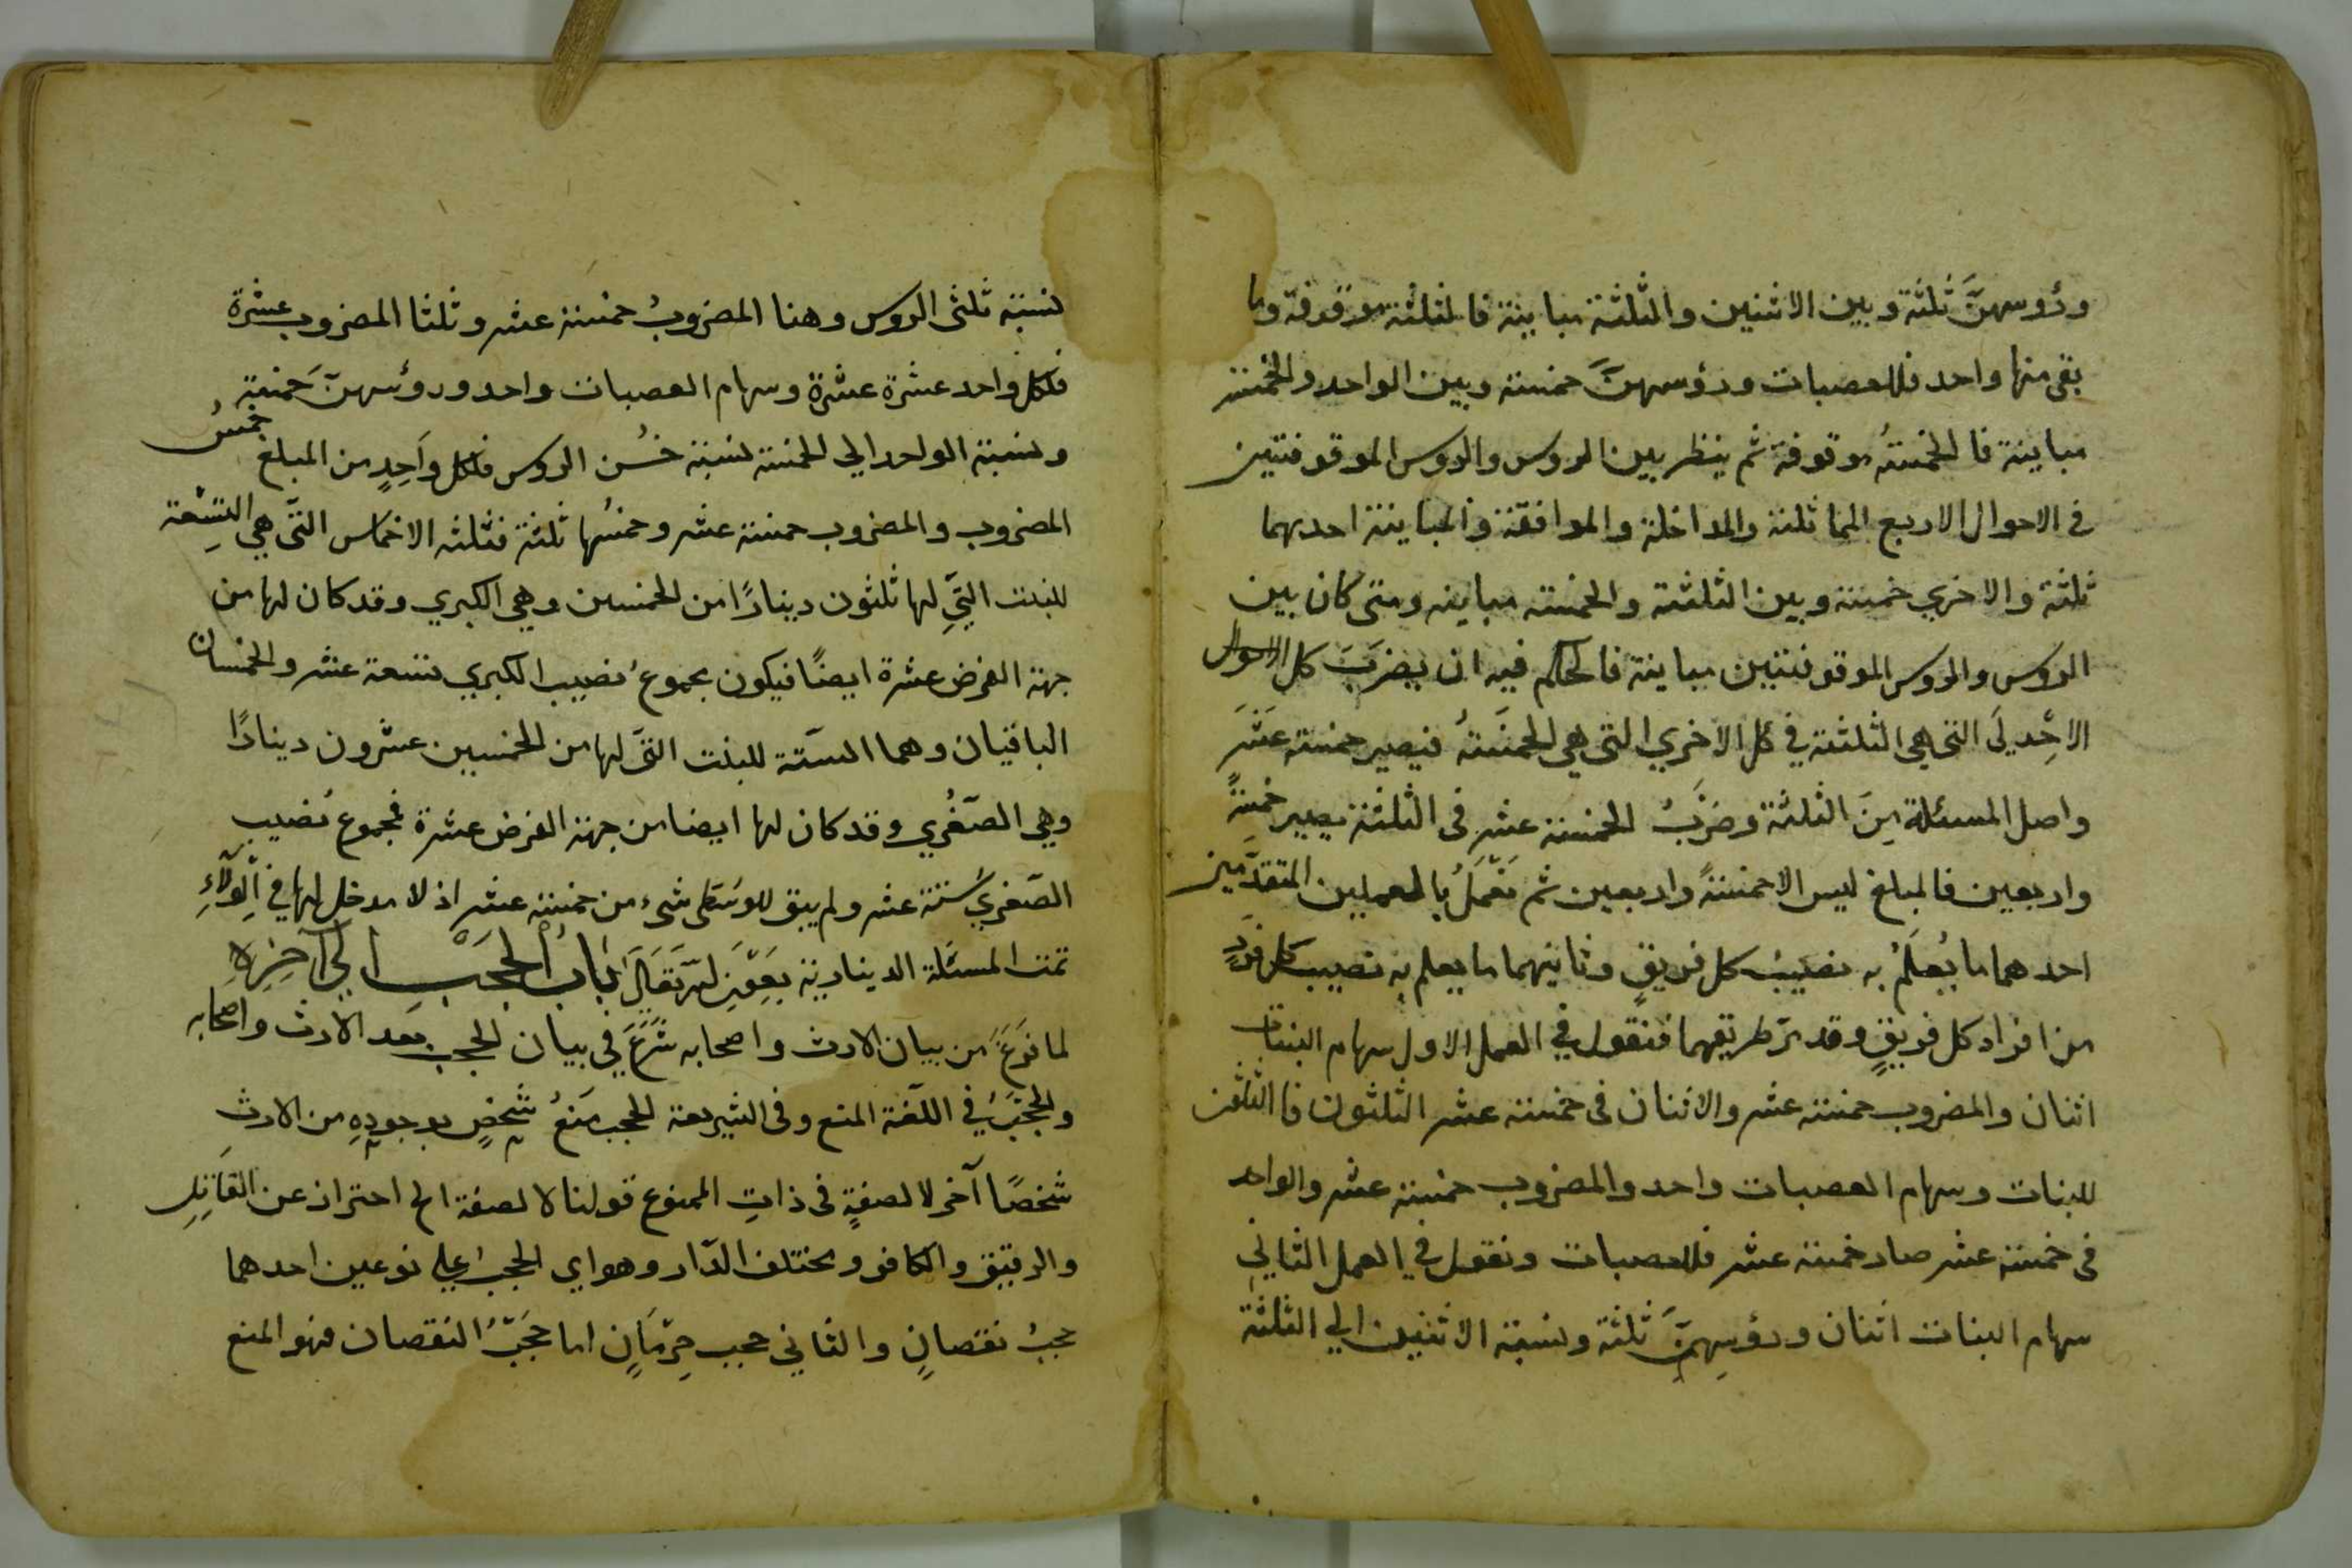 ورؤوسهنَّ ثلثة وبين الاثنين والثلثة مباينة فالثلثة موقوفة وما
بقى منها واحد فللعصبات ورؤسهنَّ خمسة وبين الواحد والخمسة
مباينة فالخمسةُ موقوفة ثم ينظر بين الروس والروس الموقوفتين
فى الاحوال الاربع المماثلة والمداخلة والموافقة والمباينة احديهما
ثلثة والاخري خمسة وبين الثلثة والخمسة مباينه ومتى كان بين
الروس والروس الموقوفتين مباينة فالحكم فيه ان يضربَ كل الروس
الاِحْديَ التى هى الثلثة في كل الاخري التى هى الخمسَةُ فيصير خمسة عَشَرَ
واصل المسئلة مِنَ الثلثة وضَرْبُ الخمسة عشر فى الثلثة يصير خمسةً
واربعين فالمبلغ ليس الا خمسةً واربعين ثم تَعْمَلُ بالعملين المتقدّمين
احدهما ما يُعلَمُ به نصيبُ كل فريقٍ وثانيهما ما يعلم به نصيب كل فردٍ
من افراد كل فريقٍ وقد مرّ طريقهما فنقول في العمل الاول سهام البنات
اثنان والمضروب خمسة عشر والاثنان فى خمسة عشر الثلثون فالثلثون
للبنات وسهام العصبات واحد والمضروب خمسة عشر والواحد
فى خمسة عشر صار خمسة عشر فللعصبات ونقول في العمل الثاني
سهام البنات اثنان ورؤسِهنَّ ثلثة ونسبة الاثنين الي الثلثة
نسبة ثلثى الروس وهنا المضروبُ خمسة عشر وثلثا المضروب عشرة
فلكل واحد عشرة عشرة وسهام العصبات واحد ورؤسهنّ خمسة
ونسبة الواحد الي الخمسة نسبة خُمُس الروس فلكل واَحِدٍ من المبلغ خمسُ
المضروب والمضروب خمسة عشر وخمسُها ثلثة فثلثه الاخماس التى هي التِسْعة
للبنت التيِ لها ثلثون دينارًا من الخمسين وهي الكبري وقد كان لها من
جهة الفرض عشرة ايضًا فيكون مجموعُ نصيب الكبري تسعة عشر والخمسان
الباقيان وهما الستّة للبنت التى لها من الخمسين عشرون دينارًا
وهي الصّغْري وقد كان لها ايضا من جهة الفرض عشرة فمجموع نُصيب
الصّغريُ ستة عشر ولم يبق للوسْطى شىء من خمسة عشر اذ لا مدخل لها في الوَلاَءِ
تمت المسئلة الدينارية بِعَوْنِ لله تعَالَى بَابُ الْحَجْبِ الي آخِرِه
لما فَرَغَ من بيان الارث واصحابه شَرَعَ في بيان الحجب بعد الارث واصحابه
والحجْبُ في اللّغة المنع وفى الشريعة الحجب مَنعُ شخصٍ بوجودِهِ من الارث
شخصًا آخر لا لصفةٍ فى ذاتِ الممنوع قولنا لا لصفة الخ احتراز عن القَاتِلِ
والرقيق والكافر ومختلف الدّار وهو اي الحجبُ علي نوعين احدهما
حجبُ نقصانٍ والثاني حجب حِرْمَانٍ اما حَجْبُ النقصان فهو المنع